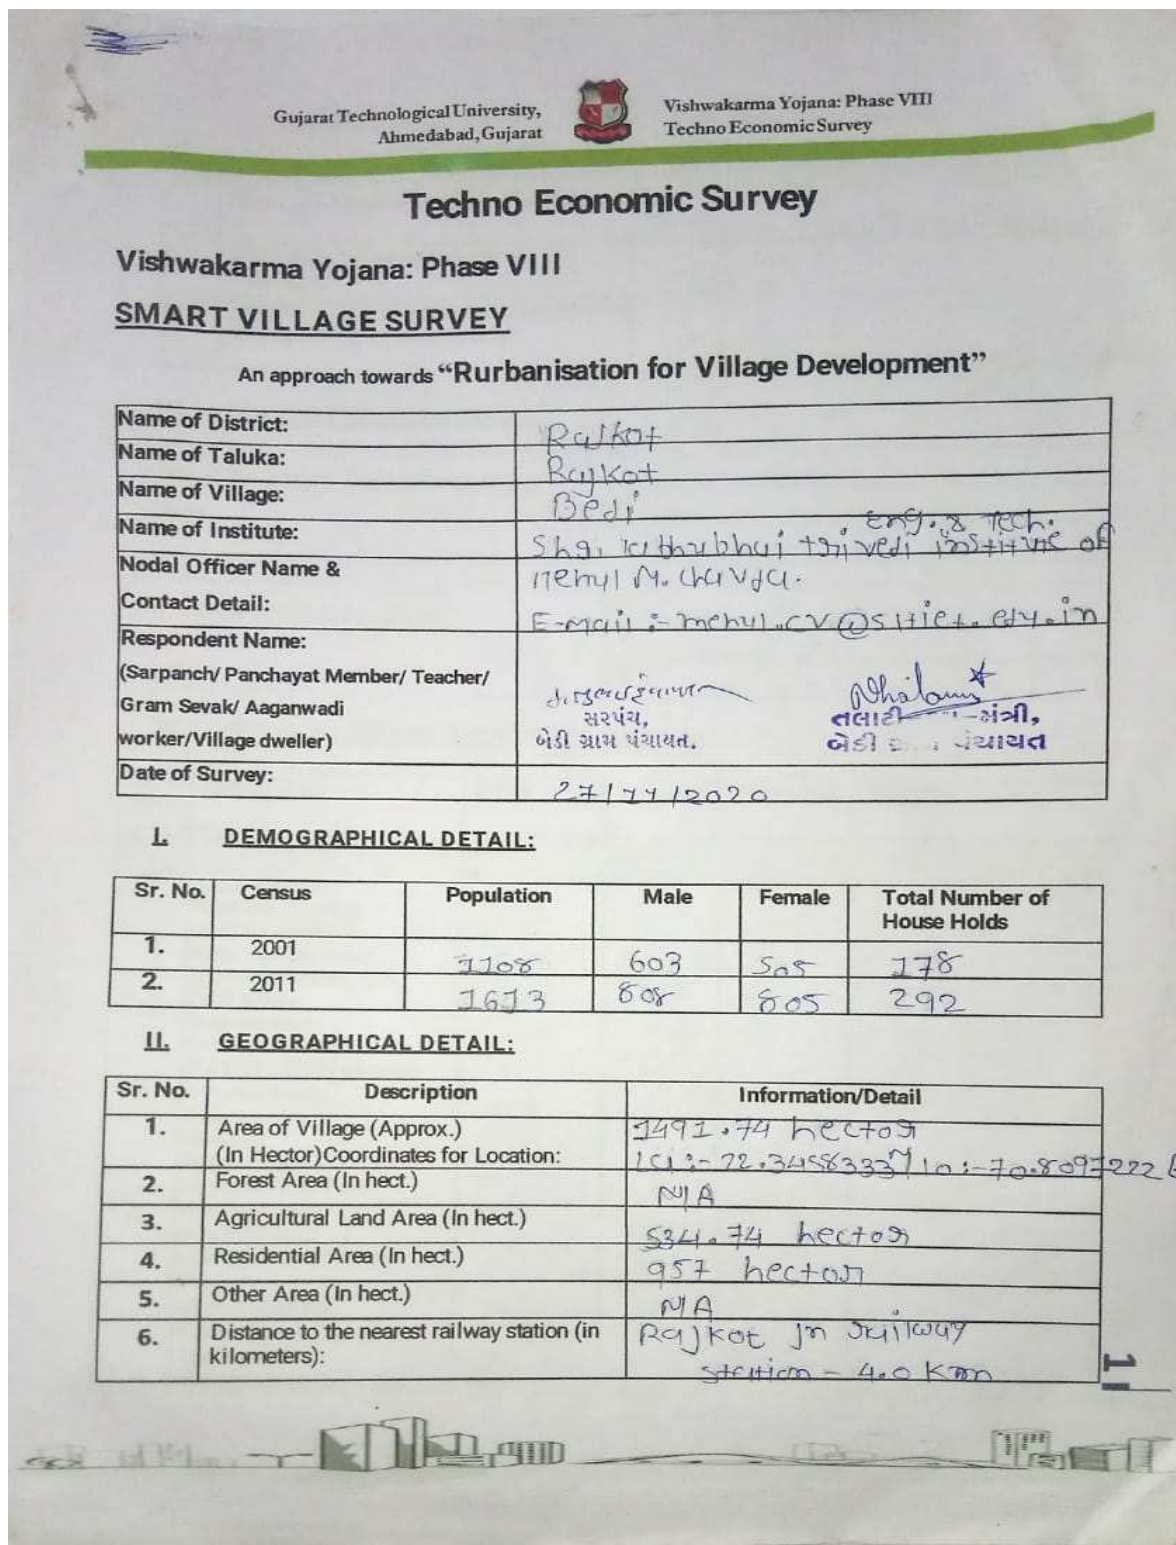 Gujarat Technological University,
Ahmedabad, Gujarat
Vishwakarma Yojana: Phase VIII
Techno Economic Survey
Techno Economic Survey
Vishwakarma Yojana: Phase VIII
SMART VILLAGE SURVEY
An approach towards “Rurbanisation for Village Development”
Name of District: Rajkot
Name of Taluka: Rajkot
Name of Village: Bedi
Eng. & Tech.
Name of Institute: Shri trivedi institute of
Nodal Officer Name & Mehul M. Chavda.
Contact Detail: E-mail :- mehul.cv@sltiet.edu.in
Respondent Name:
(Sarpanch/ Panchayat Member/ Teacher/
Gram Sevak/ Aaganwadi
સરપંચ, તલાટી મંત્રી,
worker/Village dweller) બેડી ગ્રામ પંચાયત. બેડી પંચાયત
Date of Survey: 27/11/2020
I. DEMOGRAPHICAL DETAIL:
Sr. No. Census Population Male Female Total Number of
House Holds
1. 2001 1108 603 505 178
2. 2011 1613 808 805 292
II. GEOGRAPHICAL DETAIL:
Sr. No. Description Information/Detail
1. Area of Village (Approx.) 1491.74 hector
(In Hector)Coordinates for Location: :- 22.3458333 :-70.8097222
2. Forest Area (In hect.) N/A
3. Agricultural Land Area (In hect.) 534.74 hector
4. Residential Area (In hect.) 957 hector
5. Other Area (In hect.) N/A
6. Distance to the nearest railway station (in Rajkot Jn railway
kilometers): station - 4.0 Km
1